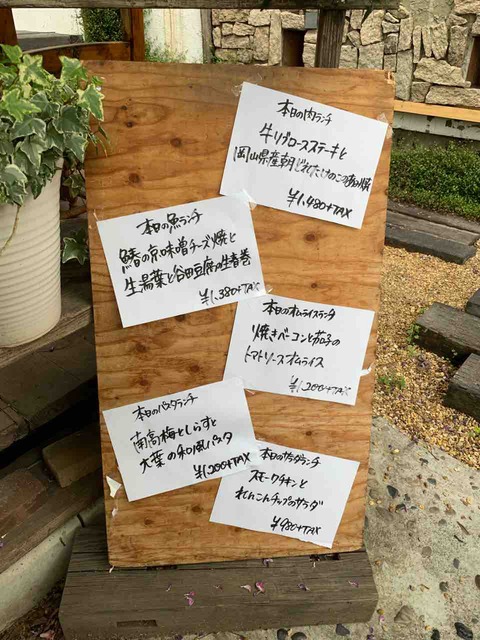 本日の肉ランチ
牛リブロースステーキと
岡山県産朝どれたけのこの
¥1,480+TAX
本日の魚ランチ
鰆の京味噌チーズ焼と
生湯葉と谷田豆腐の生春巻
¥1,380+TAX
本日のオムライスランチ
焼きベーコンと茄子の
トマトソースオムライス
¥1,200+TAX
本日のパスタランチ
南高梅としらすと
大葉の和風パスタ
¥1,200+TAX
本日のサラダランチ
スモークチキンと
れんこんチップのサラダ
¥980+TAX